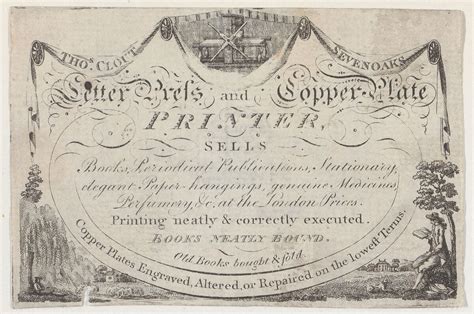 THOs. CLOUT SEVENOAKS
Letter Preſs and Copper-Plate
PRINTER,
SELLS
Books, Periodical Publications, Stationary,
elegant Paper-hangings, genuine Medicines,
Perfumery, &c. at the London Prices.
Printing neatly & correctly executed.
BOOKS NEATLY BOUND.
Old Books bought & ſold.
Copper Plates Engraved, Altered, or Repaired on the loweſt Terms.